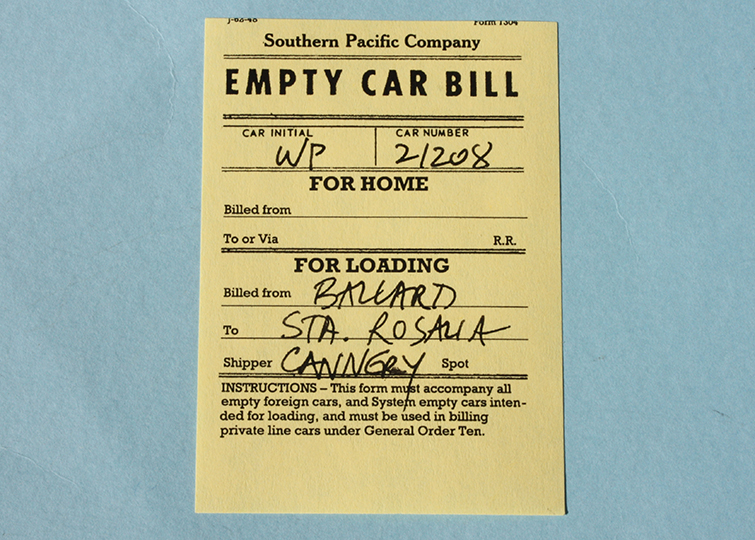 J-62-48 Form 1304
Southern Pacific Company
EMPTY CAR BILL
CAR INITIAL CAR NUMBER
WP 21208
FOR HOME
Billed from
To or Via R.R.
FOR LOADING
Billed from BALLARD
To STA. ROSALIA
Shipper CANNERY Spot
INSTRUCTIONS – This form must accompany all
empty foreign cars, and System empty cars inten-
ded for loading, and must be used in billing
private line cars under General Order Ten.